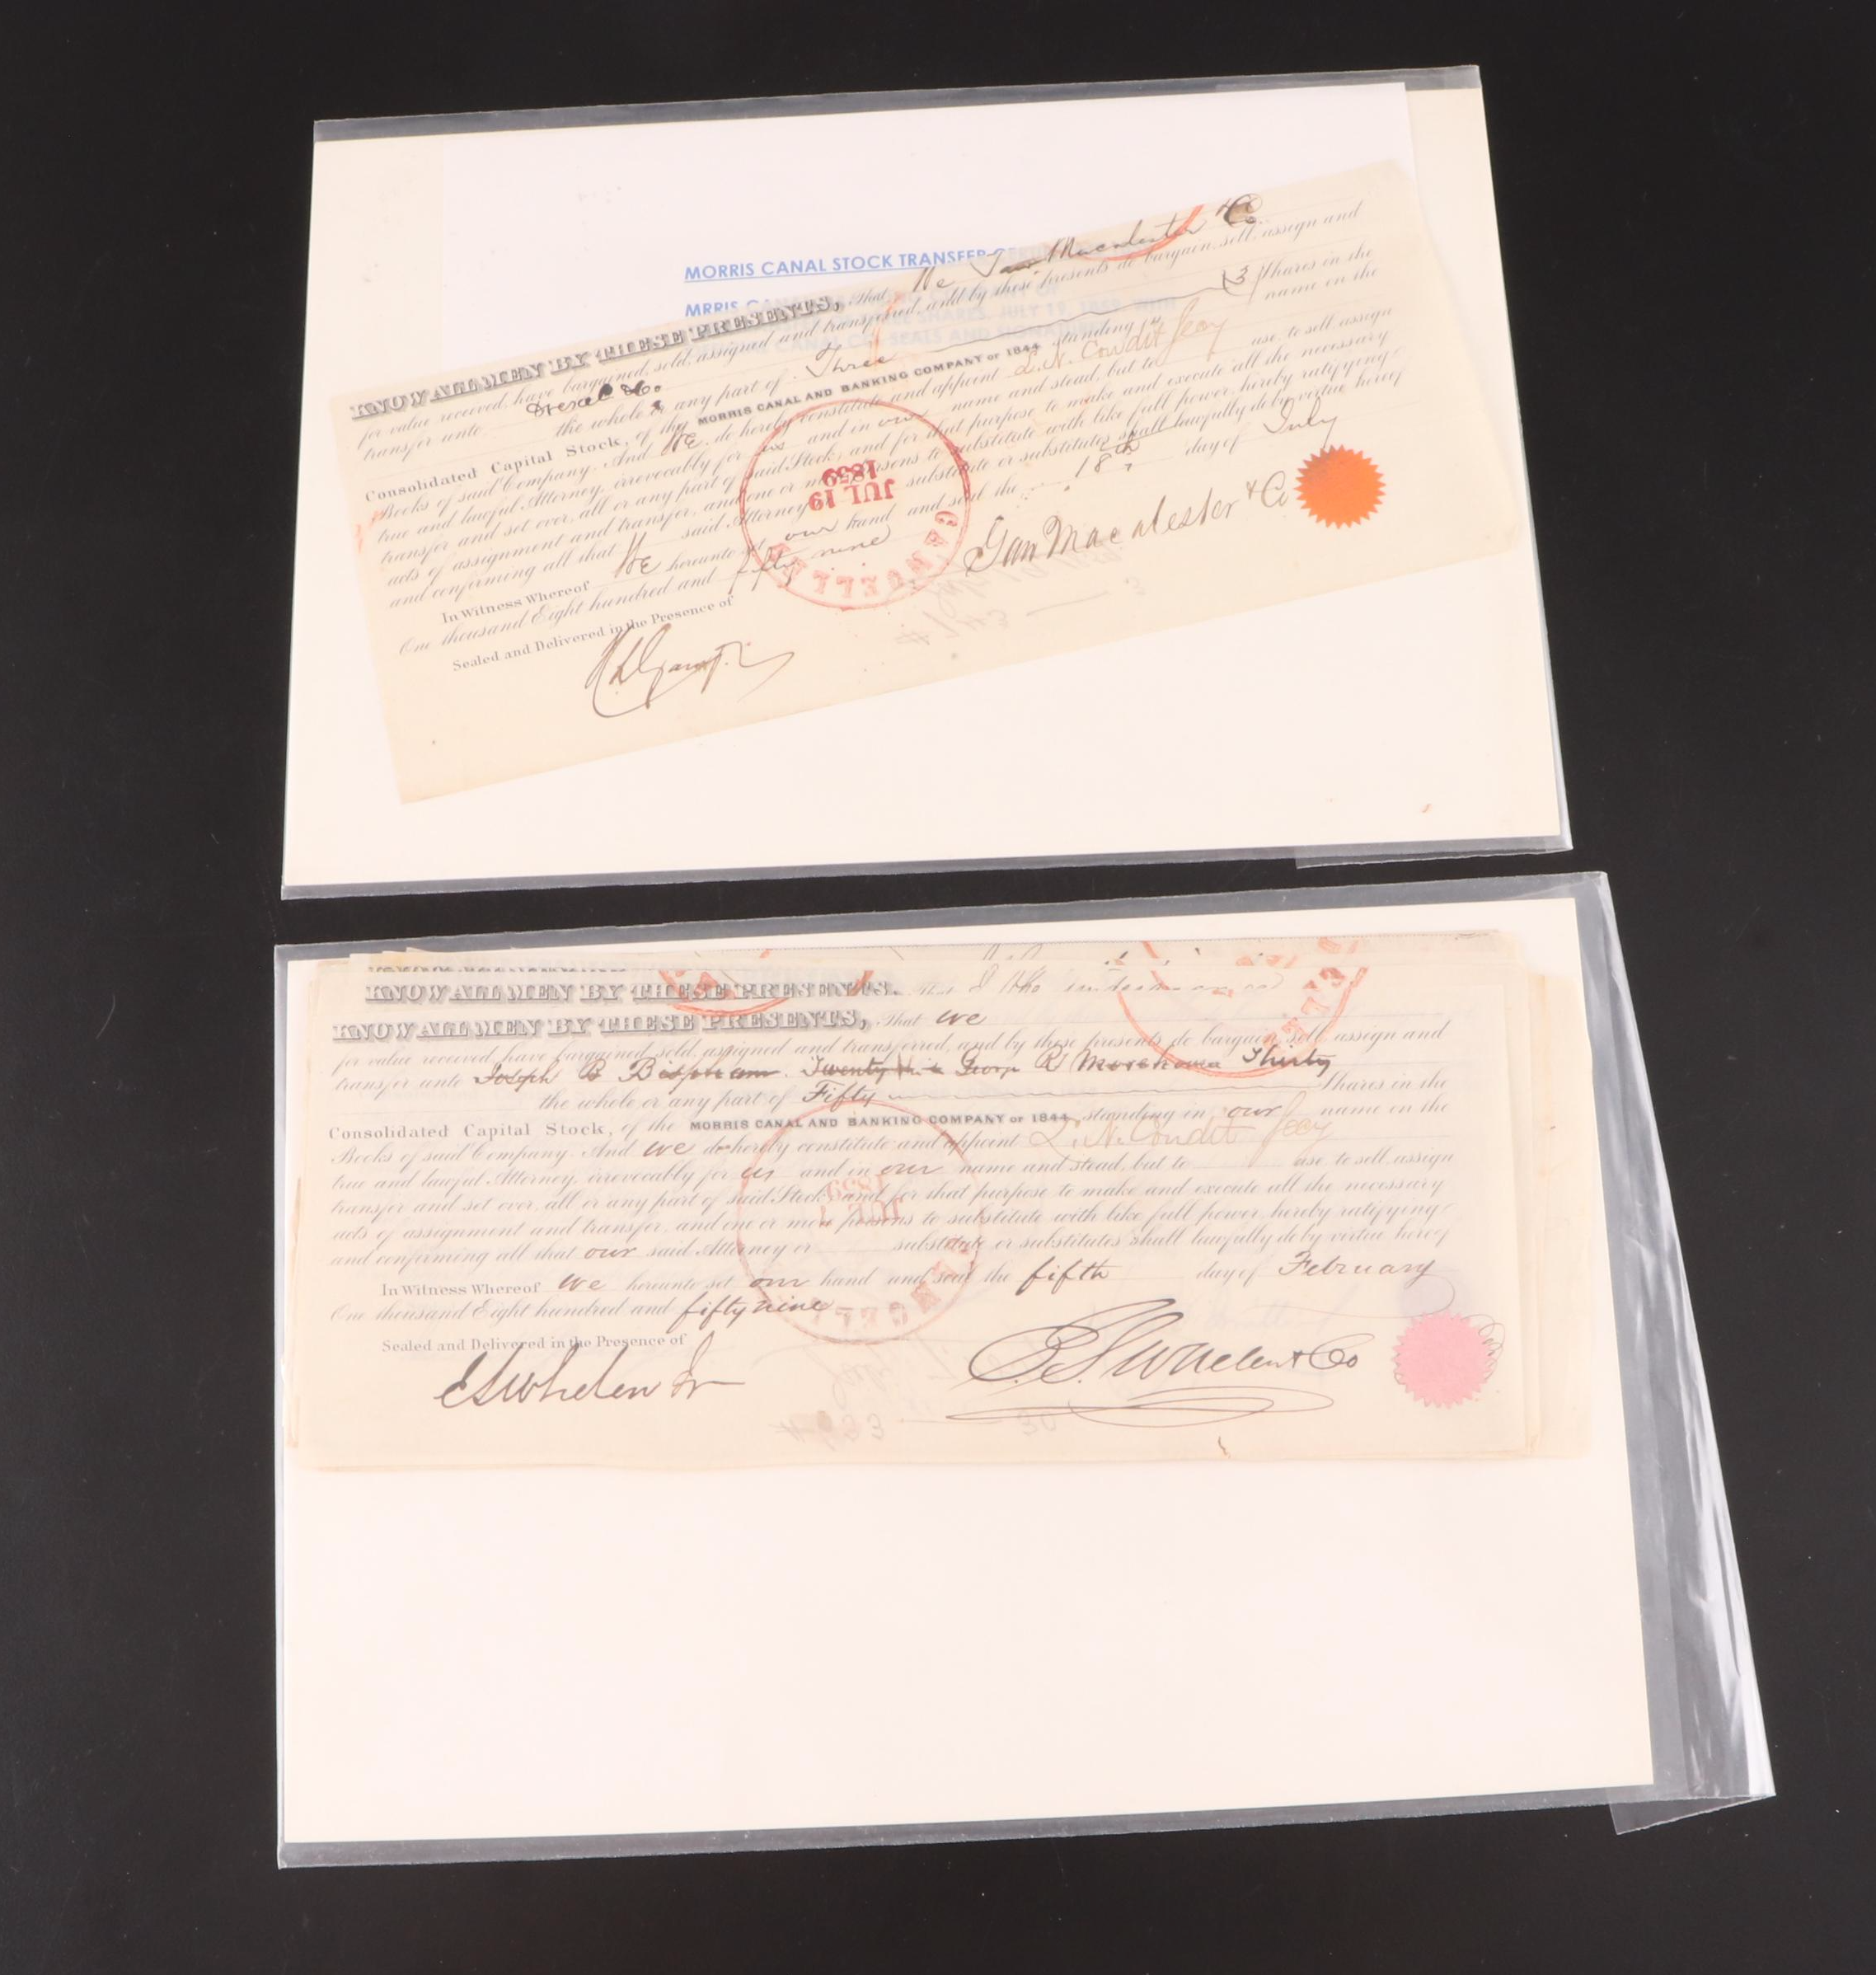 MORRIS CANAL STOCK TRANSFER
KNOW ALL MEN BY THESE PRESENTS, That We Macalester & Co
for value received, have bargained, sold, assigned and transferred, and by these presents do bargain, sell, assign and
transfer unto Drexel & Co.
the whole or any part of Three (3) Shares in the
Consolidated Capital Stock, of the MORRIS CANAL AND BANKING COMPANY OF 1844 standing in name on the
Books of said Company. And We do hereby constitute and appoint L. N. Condit Jecy
true and lawful Attorney, irrevocably for us and in our name and stead, but to use, to sell, assign
transfer and set over, all or any part of said Stock, and for that purpose to make and execute all the necessary
acts of assignment and transfer, and one or more persons to substitute with like full power, hereby ratifying
and confirming all that said Attorney substitute or substitutes shall lawfully do by virtue hereof
In Witness Whereof We hereunto set our hand and seal the 18th day of July
One thousand Eight hundred and fifty nine
Macalester & Co
Sealed and Delivered in the Presence of
CANCELLED
JUL 19
1859
KNOW ALL MEN BY THESE PRESENTS. That I the
KNOW ALL MEN BY THESE PRESENTS, That we
for value received, have bargained, sold, assigned and transferred, and by these presents do bargain, sell, assign and
transfer unto Joseph B Bispham. Twenty George R Thirty
the whole or any part of Fifty Shares in the
Consolidated Capital Stock, of the MORRIS CANAL AND BANKING COMPANY OF 1844 standing in our name on the
Books of said Company. And we do hereby constitute and appoint L. N. Condit Jecy
true and lawful Attorney, irrevocably for us and in our name and stead, but to use to sell, assign
transfer and set over, all or any part of said Stock, and for that purpose to make and execute all the necessary
acts of assignment and transfer, and one or more persons to substitute with like full power, hereby ratifying
and confirming all that our said Attorney or substitute or substitutes shall lawfully do by virtue hereof
In Witness Whereof we hereunto set our hand and seal the fifth day of February
One thousand Eight hundred and fifty nine
Sealed and Delivered in the Presence of
E S Whelen Jr
E. S. Whelen & Co
CANCELLED
1859